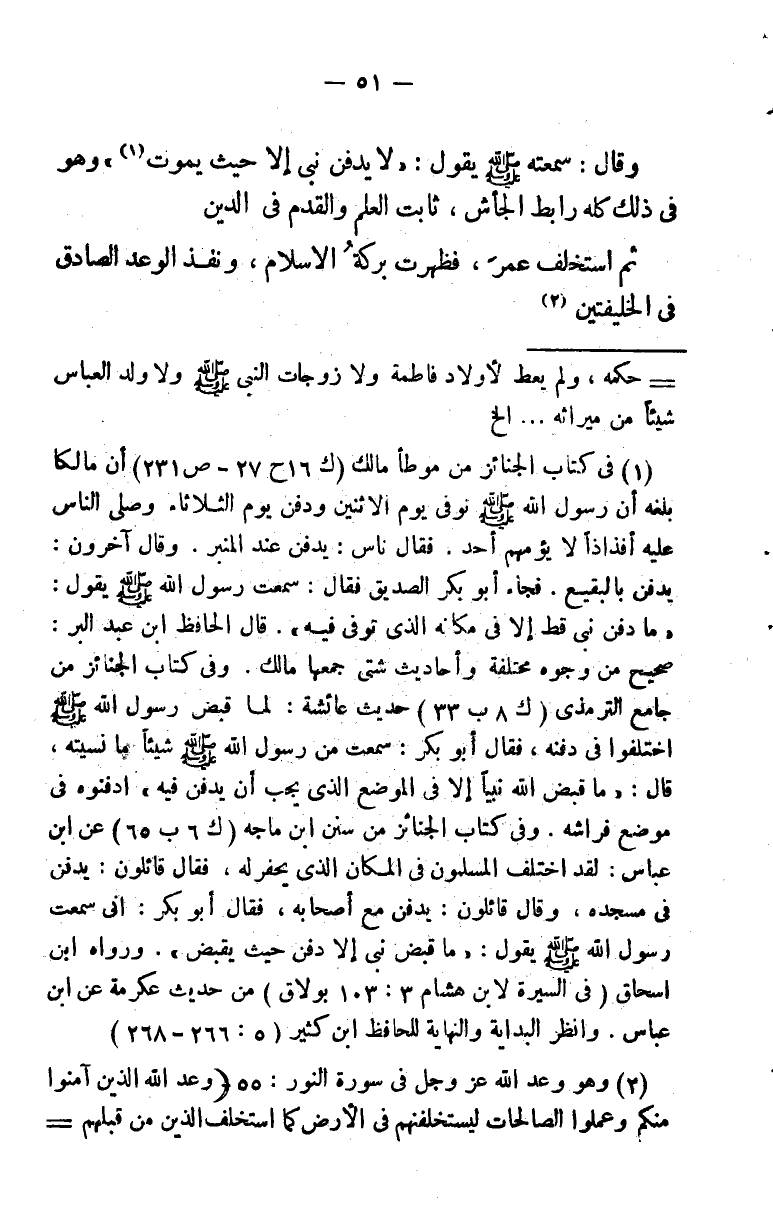 — ٥١ —
وقال : سمعته ﷺ يقول : « لا يدفن نبى إلا حيث يموت (١) » وهو
فى ذلك كله رابط الجأش ، ثابت العلم والقدم فى الدين
ثم استخلف عمرَ ، فظهرت بركةُ الاسلام ، ونفذ الوعد الصادق
فى الخليفتين (٢)
== حكمه ، ولم يعط لأولاد فاطمة ولا زوجات النبى ﷺ ولا ولد العباس
شيئاً من ميراثه ... الخ
(١) فى كتاب الجنائز من موطأ مالك (ك ١٦ ح ٢٧ – ص ٢٣١) أن مالكا
بلغه أن رسول الله ﷺ توفى يوم الاثنين ودفن يوم الثلاثاء وصلى الناس
عليه أفذاذاً لا يؤمهم أحد . فقال ناس : يدفن عند المنبر . وقال آخرون :
يدفن بالبقيع . فجاء أبو بكر الصديق فقال : سمعت رسول الله ﷺ يقول :
« ما دفن نبى قط إلا فى مكانه الذى توفى فيه » . قال الحافظ ابن عبد البر :
صحيح من وجوه مختلفة وأحاديث شتى جمعها مالك . وفى كتاب الجنائز من
جامع الترمذى ( ك ٨ ب ٣٣ ) حديث عائشة : لما قبض رسول الله ﷺ
اختلفوا فى دفنه ، فقال أبو بكر : سمعت من رسول الله ﷺ شيئاً ما نسيته ،
قال : « ما قبض الله نبياً إلا فى الموضع الذى يحب أن يدفن فيه » ادفنوه فى
موضع فراشه . وفى كتاب الجنائز من سنن ابن ماجه ( ك ٦ ب ٦٥ ) عن ابن
عباس : لقد اختلف المسلمون فى المكان الذى يحفر له ، فقال قائلون : يدفن
فى مسجده ، وقال قائلون : يدفن مع أصحابه ، فقال أبو بكر : انى سمعت
رسول الله ﷺ يقول : « ما قبض نبى إلا دفن حيث يقبض » . ورواه ابن
اسحاق ( فى السيرة لابن هشام ٣ : ١٠٣ بولاق ) من حديث عكرمة عن ابن
عباس . وانظر البداية والنهاية للحافظ ابن كثير ( ٥ : ٢٦٦ – ٢٦٨ )
(٢) وهو وعد الله عز وجل فى سورة النور : ٥٥ ( وعد الله الذين آمنوا
منكم وعملوا الصالحات ليستخلفنهم فى الأرض كما استخلف الذين من قبلهم ==